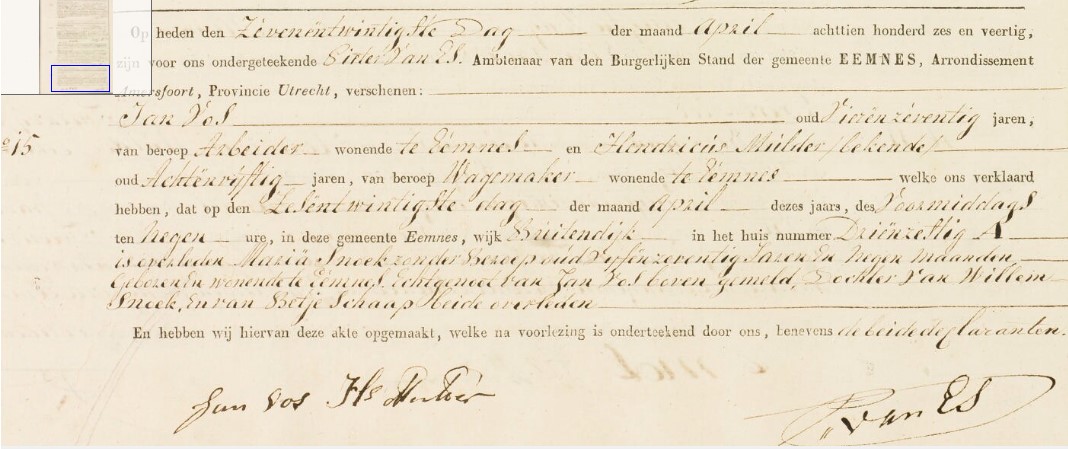 Op heden den Zevenentwintigste Dag der maand April achttien honderd zes en veertig,
zijn voor ons ondergeteekende Pieter Van ES. Ambtenaar van den Burgerlijken Stand der gemeente EEMNES, Arrondissement
Amersfoort, Provincie Utrecht, verschenen:
Jan Vos oud Vierenzeventig jaren,
No 15
van beroep Arbeider wonende te Eemnes en Hendricus Mulder /bekende/
oud Achtenvyftig jaren, van beroep Wagemaker wonende te Eemnes welke ons verklaard
hebben, dat op den Zesentwintigste dag der maand April dezes jaars, des Voormiddags
ten Negen ure, in deze gemeente Eemnes, wijk Buitendijk in het huis nummer Drienzestig A
is overleden Maria Snoek zonder Beroep oud Vyfenzeventig Jaren En Negen maanden,
Geboren En wonende te Eemnes, Echtgenoot van Jan Vos boven gemeld, Dochter Van Willem
Snoek, En van Betje Schaap Beide overleden
En hebben wij hiervan deze akte opgemaakt, welke na voorlezing is onderteekend door ons, benevens de beide declaranten.
Jan Vos Hs Mulder
P. van ES